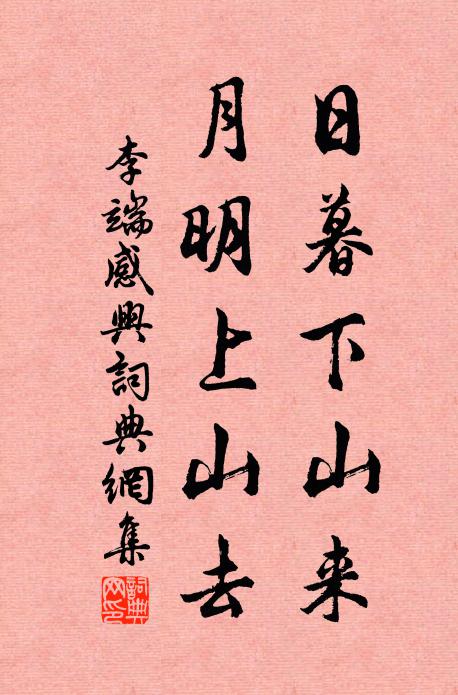 日暮下山来
月明上山去
李端感興詞典網集
詞典網印